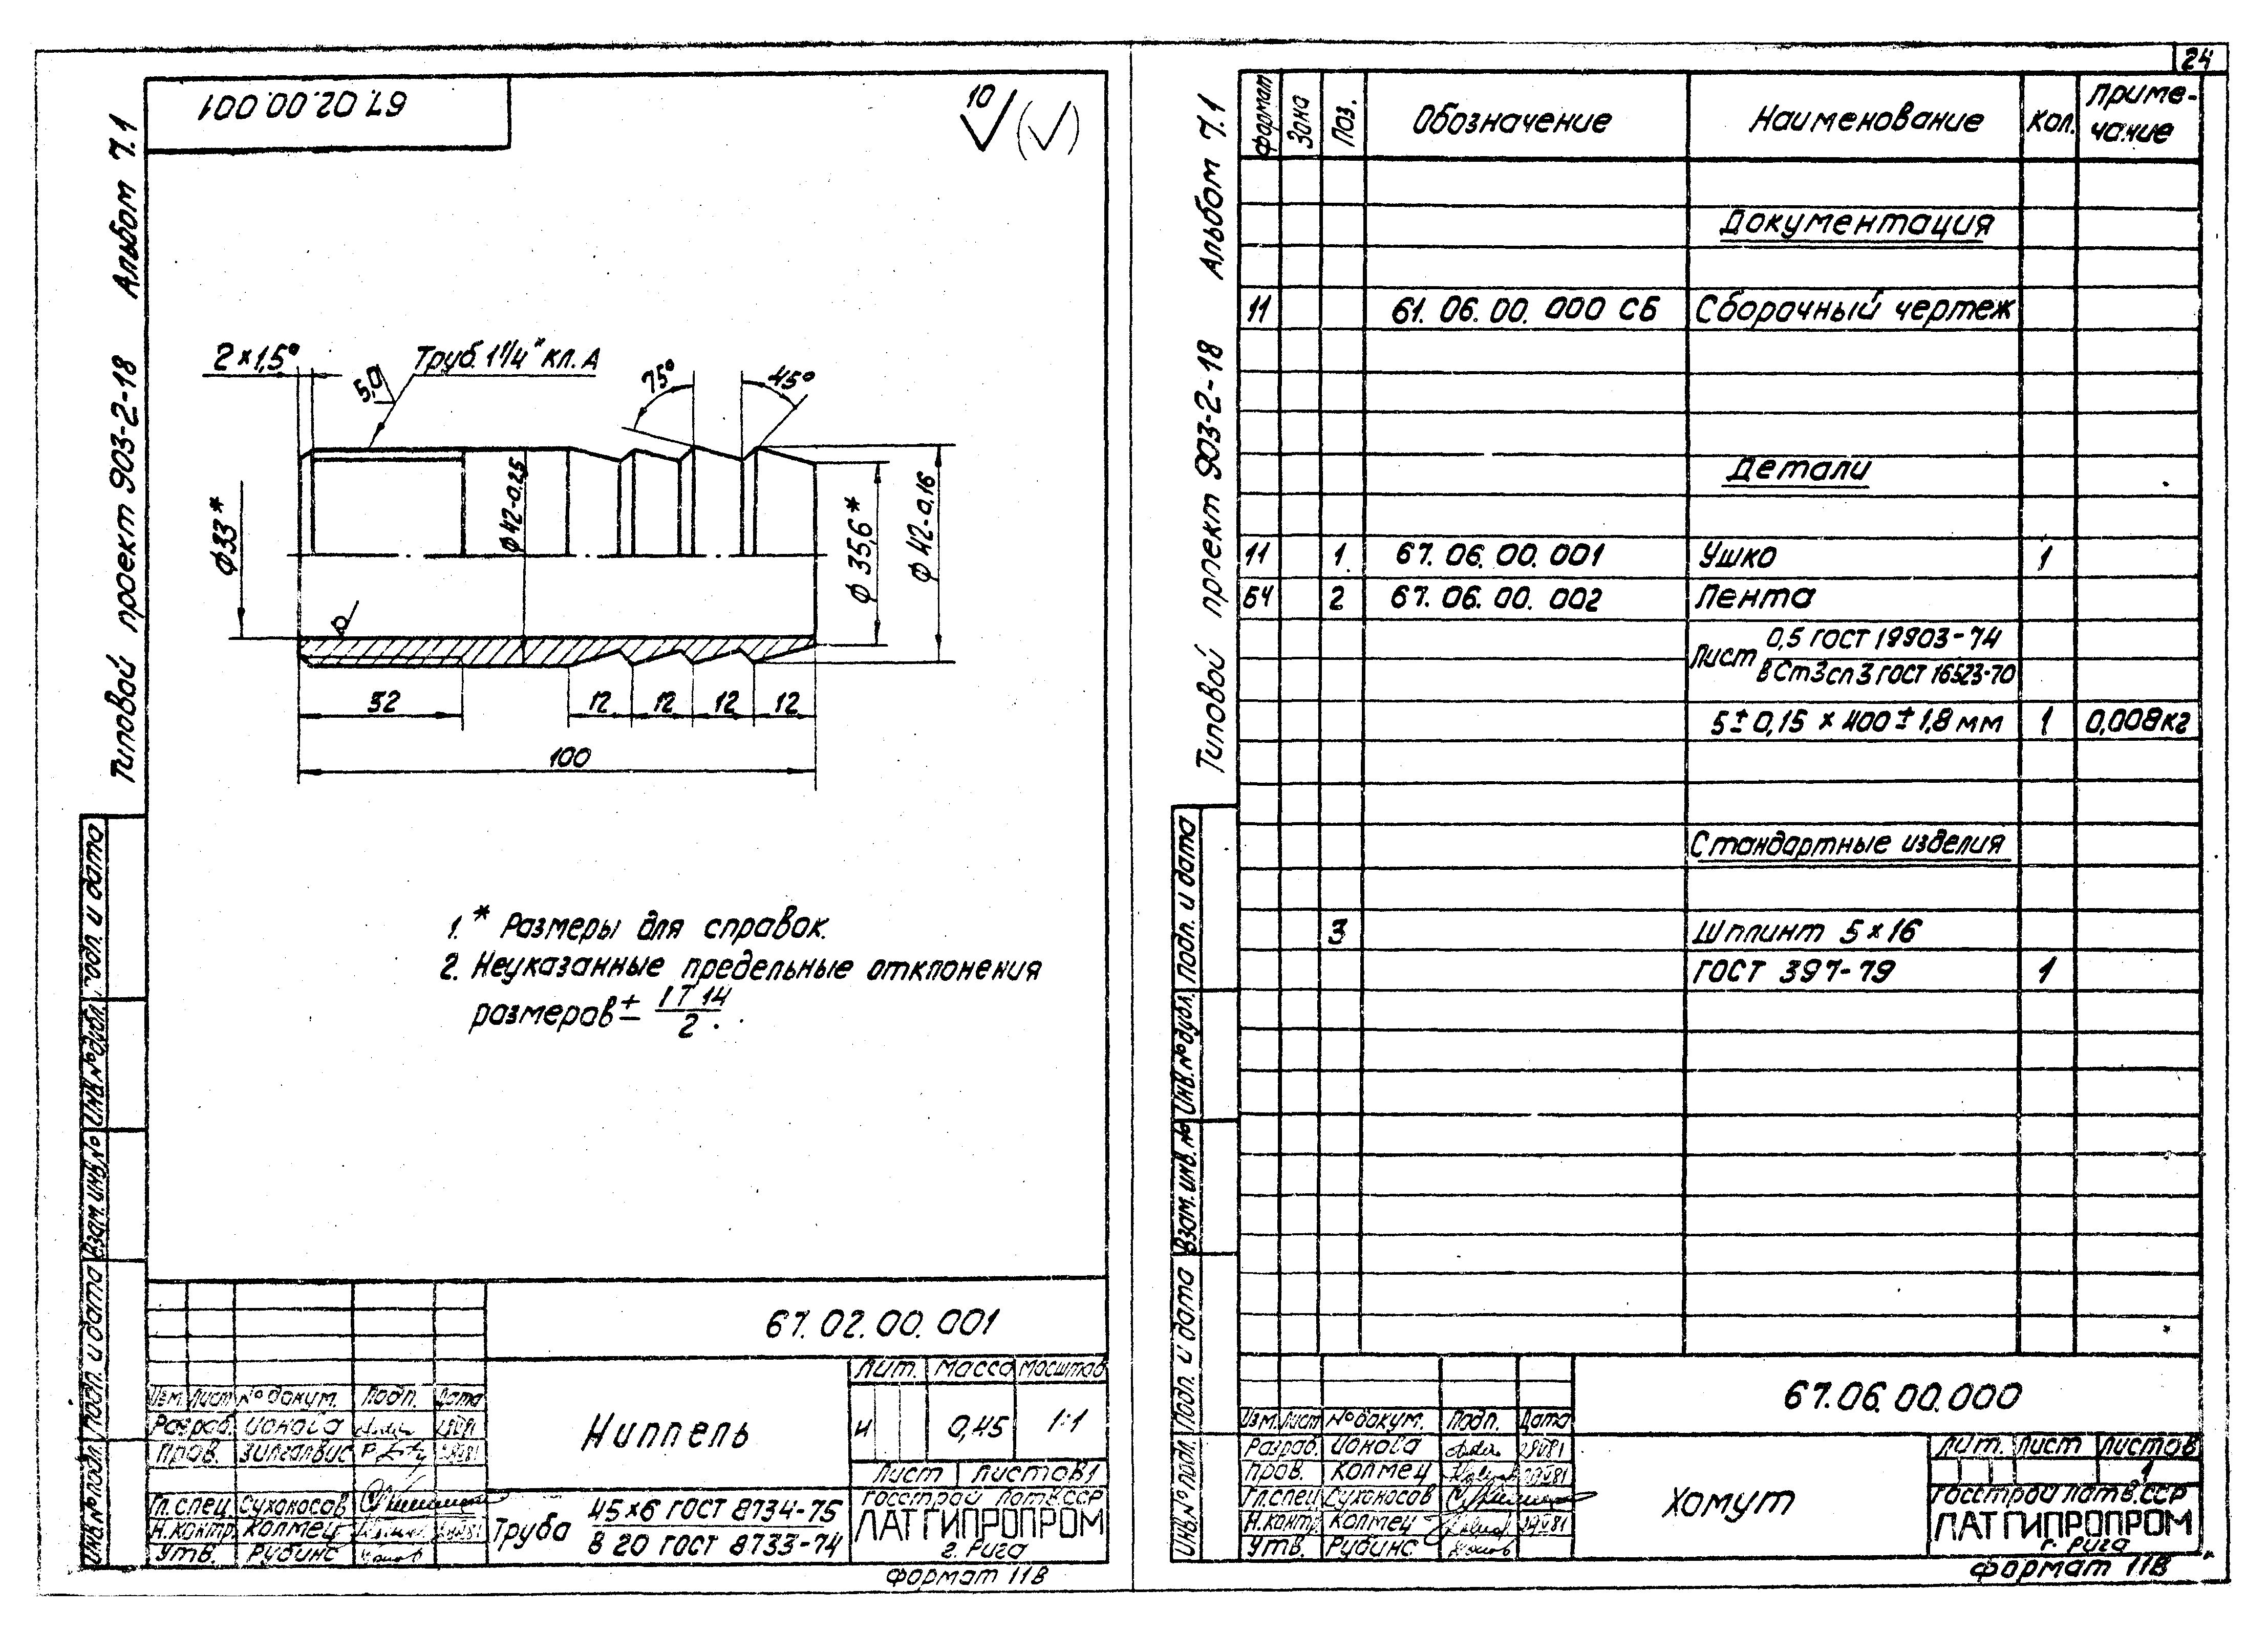 24
67.02.00.001
10
Типовой проект 903-2-18 Альбом 7.1
2×1,5°
5,0
Труб. 1 1/4" кл. А
75°
45°
ϕ33*
ϕ42-0.25
ϕ35,6*
ϕ42-0.16
32
12
12
12
12
100
1. * Размеры для справок.
2. Неуказанные предельные отклонения
размеров ± IT 14
2.
67.02.00.001
Лит. Масса Масштаб
Изм. Лист № докум. Подп. Дата
Разраб. Ионова
Пров. Зилгалвис
Гл.спец. Сухоносов
Н.контр. Колмец
Утв. Рубинс
Ниппель
И 0,45 1:1
Лист Листов 1
Труба 45×6 ГОСТ 8734-75
В 20 ГОСТ 8733-74
Госстрой Латв.ССР
ЛАТГИПРОПРОМ
г. Рига
Формат 11В
Инв.№ подл. Подп. и дата Взам.инв.№ Инв.№ дубл. Подп. и дата
Типовой проект 903-2-18 Альбом 7.1
Формат Зона Поз. Обозначение Наименование Кол. Приме-
чание
Документация
11 61.06.00.000 СБ Сборочный чертеж
Детали
11 1 67.06.00.001 Ушко 1
БЧ 2 67.06.00.002 Лента
Лист 0,5 ГОСТ 19903-74
ВСт3сп3 ГОСТ 16523-70
5±0,15 × 400±1,8 мм 1 0,008кг
Стандартные изделия
3 Шплинт 5×16
ГОСТ 397-79 1
67.06.00.000
Изм. Лист № докум. Подп. Дата
Разраб. Ионова
Пров. Колмец
Гл.спец. Сухоносов
Н.контр. Колмец
Утв. Рубинс
Хомут
Лит. Лист Листов
1
Госстрой Латв.ССР
ЛАТГИПРОПРОМ
г. Рига
Формат 11В
Инв.№ подл. Подп. и дата Взам.инв.№ Инв.№ дубл. Подп. и дата